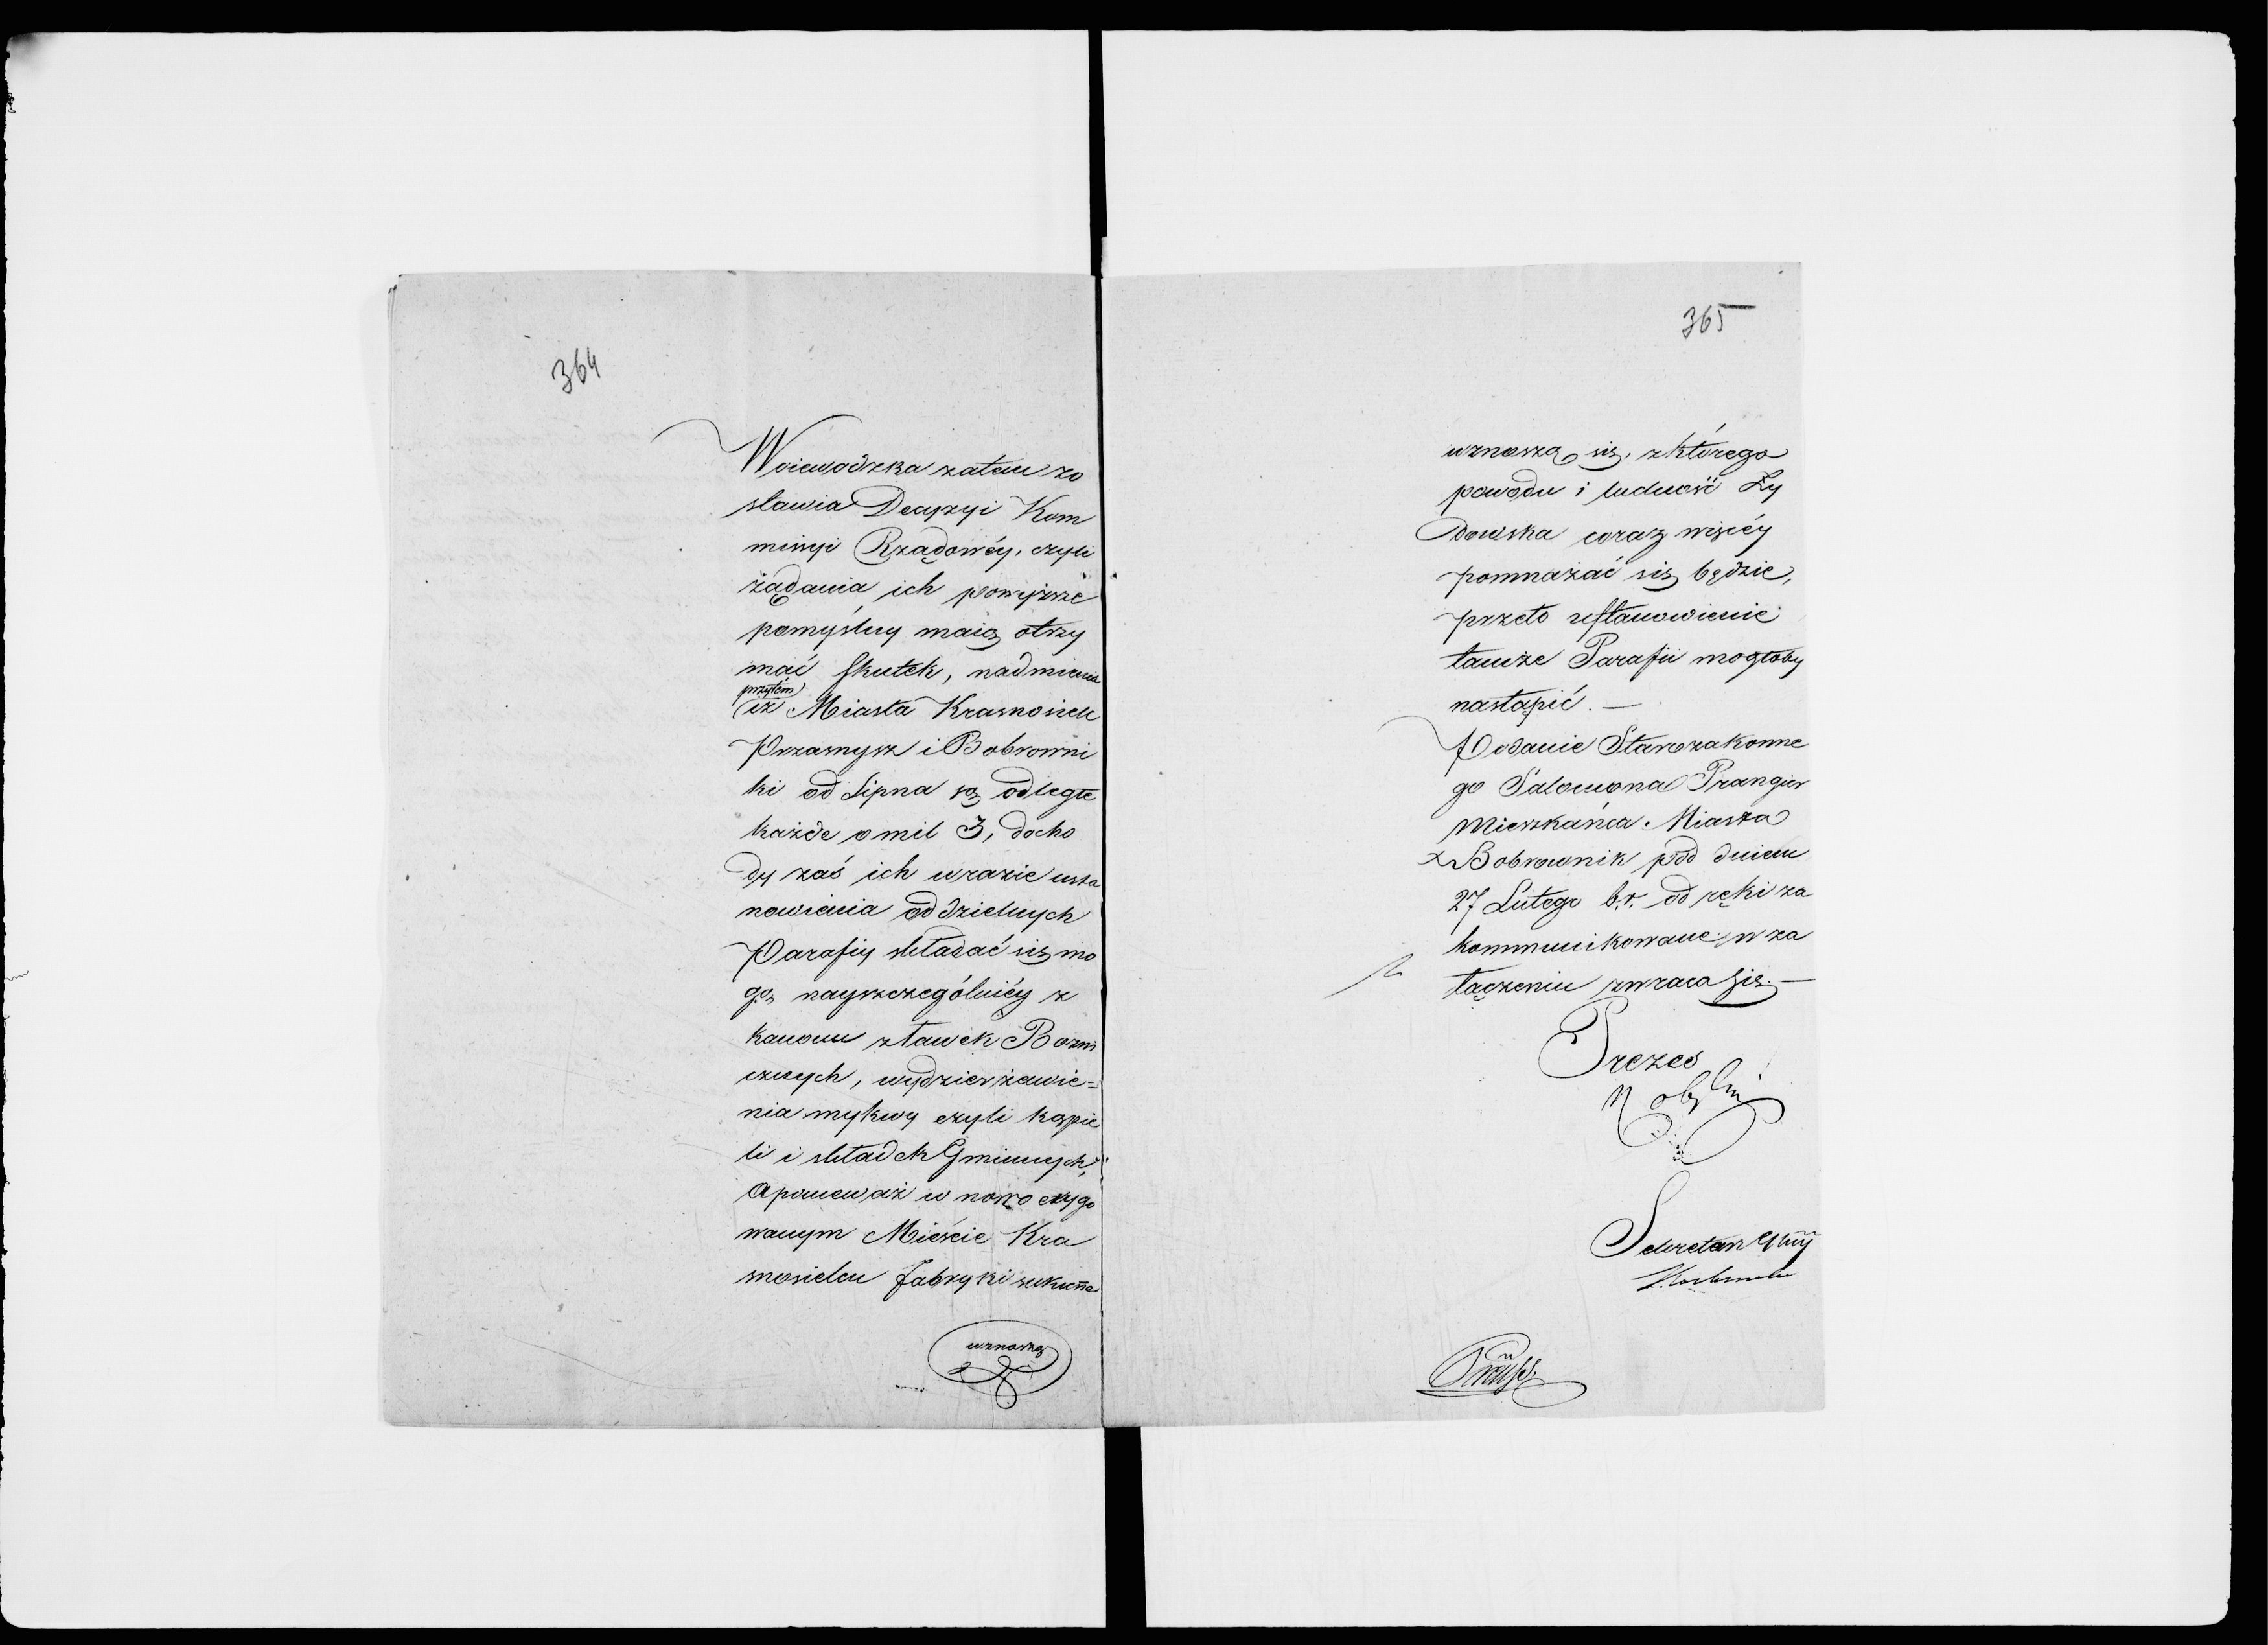 364
Woiewodzka zatem zo
stawia Decyzyi Kom
missyi Rządowéy, czyli
żądania ich powyższe
pomyślny maią otrzy
mać skutek, nadmienia
przytém
iż Miasta Krasnosielc
Przasnysz i Bobrowni
ki od Lipna są odległe
każde o mil 3, docho
dy zaś ich w razie usta
nowienia oddzielnych
Parafiy składać się mo
gą nayszczególniéy z
kanonu z ławek Bożni
cznych, wydzierżawie=
nia mykwy czyli kąpie
li i składek Gminnych,
a ponieważ w nowo erygo
wanym Mieście Kra
snosielcu fabryki sukienne
wznoszą
365
wznoszą się, z którego
powodu i ludność Ży
dowska coraz więcéy
pomnażać się będzie,
przeto ustanowienie
tamże Parafii mogłoby
nastąpić. —
Podanie Starozakonne
go Salomona Prangier
Mieszkańca Miasta
z Bobrownik pod dniem
27 Lutego b.r. od ręki za
kommunikowane w za
łączeniu zwraca się. —
Prezes
Sekretarz Jlny